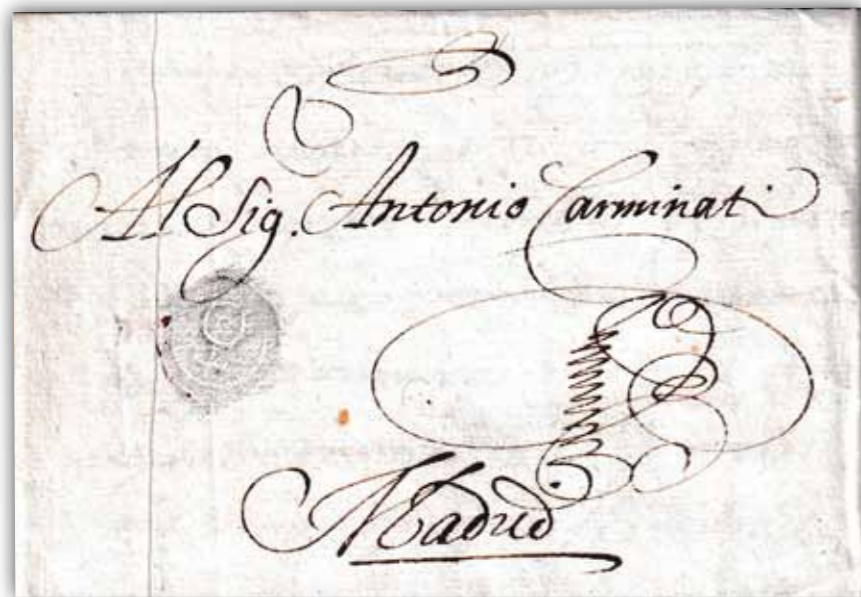 Al Sig. Antonio Carminati
Madrid